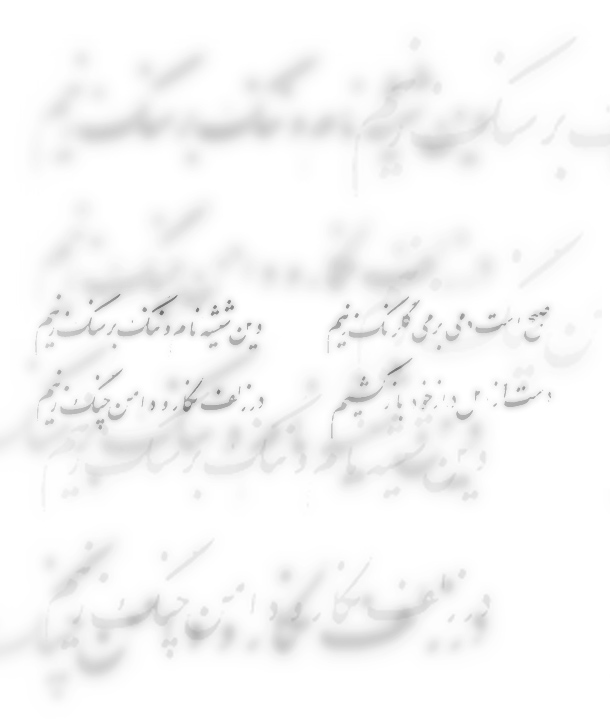 صبح است دمی بر می گلرنگ زنیم وین شیشه نام و ننگ بر سنگ زنیم
دست از امل دراز خود باز کشیم در زلف نگار و دامن چنگ زنیم